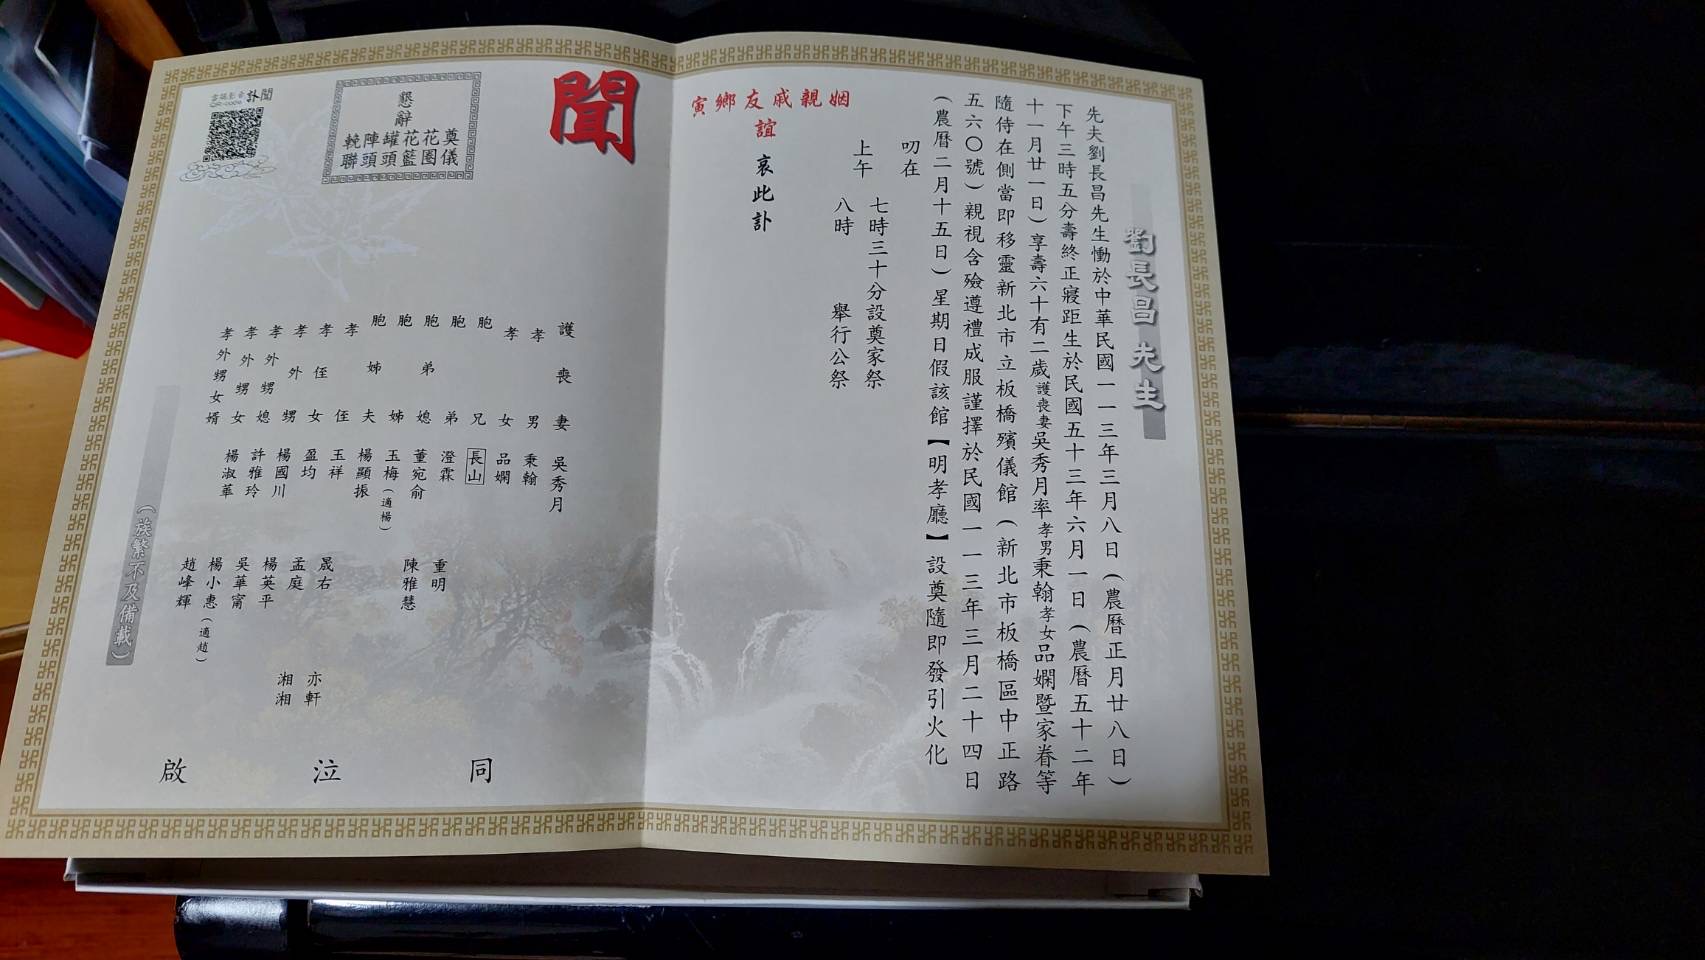 劉長昌 先生
先夫劉長昌先生慟於中華民國一一三年三月八日(農曆正月廿八日)
下午三時五分壽終正寢距生於民國五十三年六月一日(農曆五十二年
十一月廿一日)享壽六十有二歲護喪妻吳秀月率孝男秉翰孝女品嫻暨家眷等
隨侍在側當即移靈新北市立板橋殯儀館(新北市板橋區中正路
五六〇號)親視含殮遵禮成服謹擇於民國一一三年三月二十四日
(農曆二月十五日)星期日假該館【明孝廳】設奠隨即發引火化
叨在
七時三十分設奠家祭
上午
八時 舉行公祭
姻親戚友鄉寅
誼
哀此訃
聞
懇辭
奠儀
花圈
花藍
罐頭
陣頭
輓聯
訃聞
護喪妻 吳秀月
孝男 秉翰
孝女 品嫻
胞兄 長山
胞弟 澄霖 重明
胞弟媳 董宛俞 陳雅慧
胞姊 玉梅(適楊)
胞姊夫 楊顯振
孝侄 玉祥 晟右 亦軒
孝侄女 盈均 孟庭 湘湘
孝外甥 楊國川 楊英平
孝外甥媳 許雅玲 吳華甯
孝外甥女 楊淑華 楊小惠(適趙)
孝外甥女婿 趙峰輝
(族繁不及備載)
同泣啟